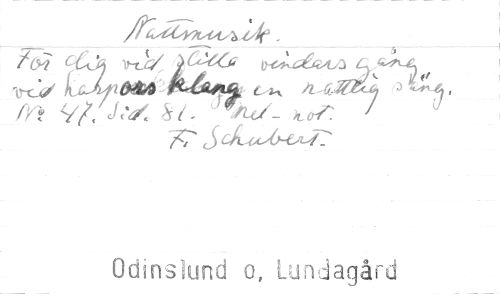 Nattmusik.
För dig vid stilla vindars gång
vid harpors klang en nattlig sång.
No. 47. Sid. 81. Mel-not.
F. Schubert.
Odinslund o, Lundagård